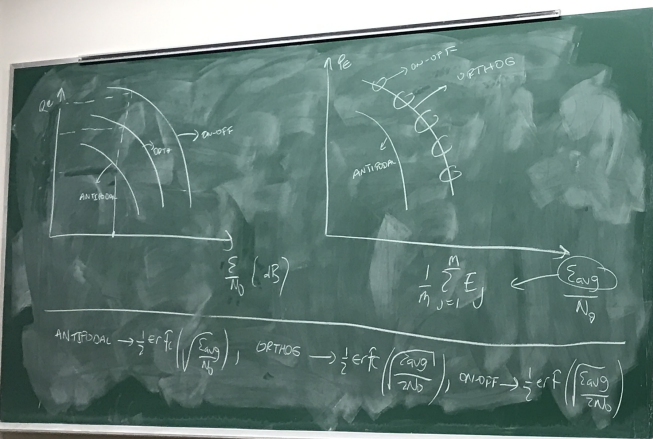 Pe
ANTIPODAL
ORTH
ON-OFF
ε/N₀ (dB)
Pe
ON-OFF
ORTHOG
ANTIPODAL
1/m Σ_{j=1}^{m} E_j
εavg/N₀
ANTIPODAL → 1/2 erfc(√(εavg/N₀)), ORTHOG → 1/2 erfc(√(εavg/2N₀)), ON-OFF → 1/2 erf(√(εavg/2N₀))